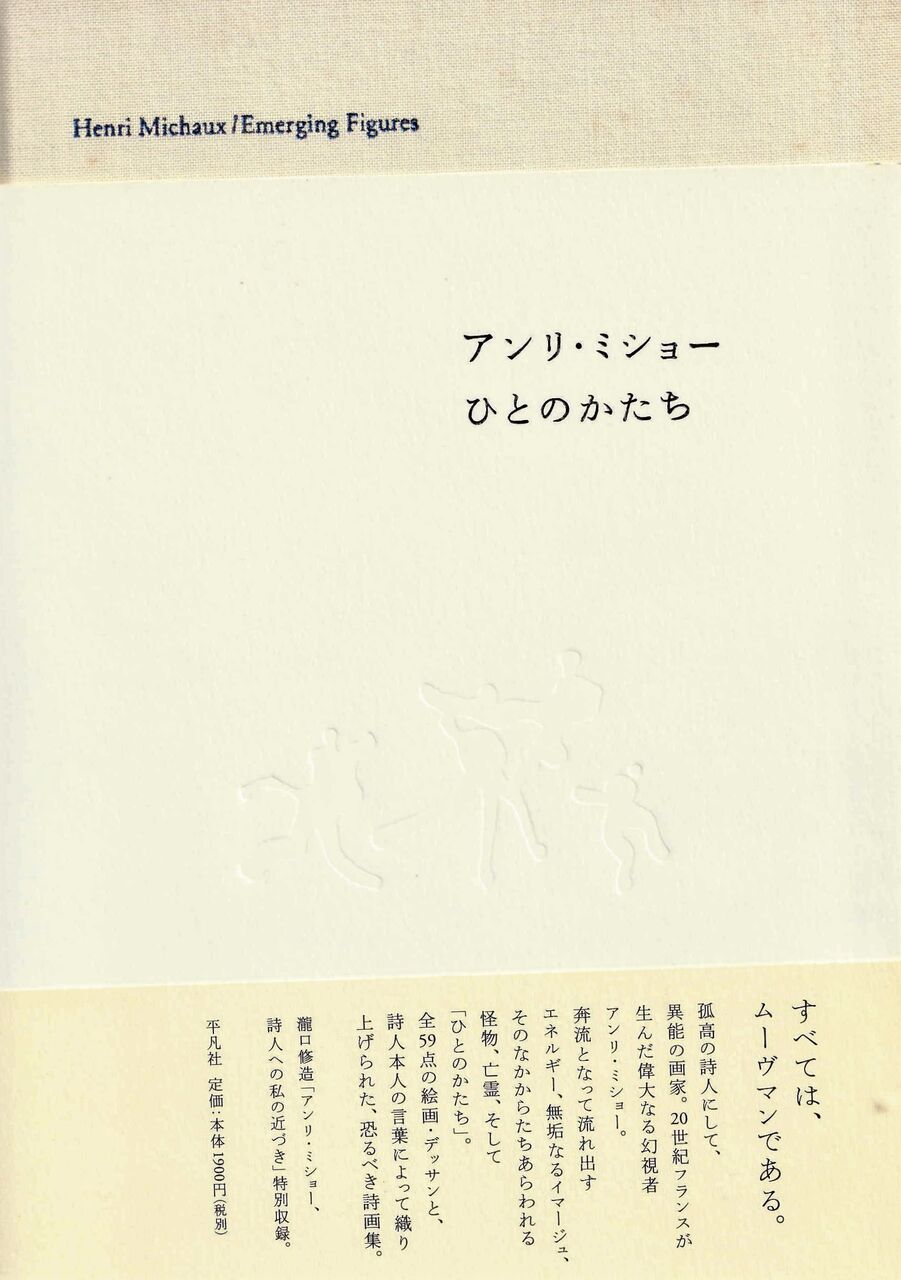 Henri Michaux/Emerging Figures
アンリ・ミショー
ひとのかたち
すべては、
ムーヴマンである。
孤高の詩人にして、
異能の画家。20世紀フランスが
生んだ偉大なる幻視者
アンリ・ミショー。
奔流となって流れ出す
エネルギー、無垢なるイマージュ、
そのなかからたちあらわれる
怪物、亡霊、そして
「ひとのかたち」。
全59点の絵画・デッサンと、
詩人本人の言葉によって織り
上げられた、恐るべき詩画集。
瀧口修造「アンリ・ミショー、
詩人への私の近づき」特別収録。
平凡社 定価:本体1900円(税別)